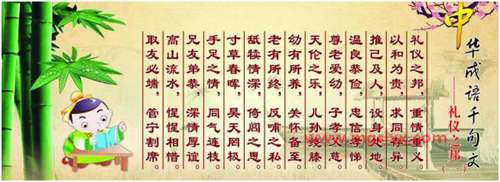 中华成语千句文
——礼仪之邦
礼仪之邦，重情重义
以和为贵，求同存异
推己及人，设身处地
温良恭俭，忠信孝悌
尊老爱幼，子孝
天伦之乐，儿孙绕膝
幼有所养，关怀备至
老有所终，反哺之私
舐犊情深，倚闾之思
寸草春晖，昊天罔极
手足之情，同气连枝
兄友弟恭，深情厚谊
高山流水，惺惺相惜
取友必端，管宁割席